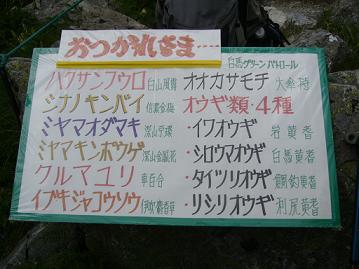 おつかれさま・・・・
白馬グリーンパトロール
ハクサンフウロ 白山風露
シナノキンバイ 信濃金梅
ミヤマオダマキ 深山苧環
ミヤマキンポウゲ 深山金鳳花
クルマユリ 車百合
イブキジャコウソウ 伊吹麝香草
オオカサモチ 大傘持
オウギ類・4種
・イワオウギ 岩黄耆
・シロウマオウギ 白馬黄耆
・タイツリオウギ 鯛釣黄耆
・リシリオウギ 利尻黄耆